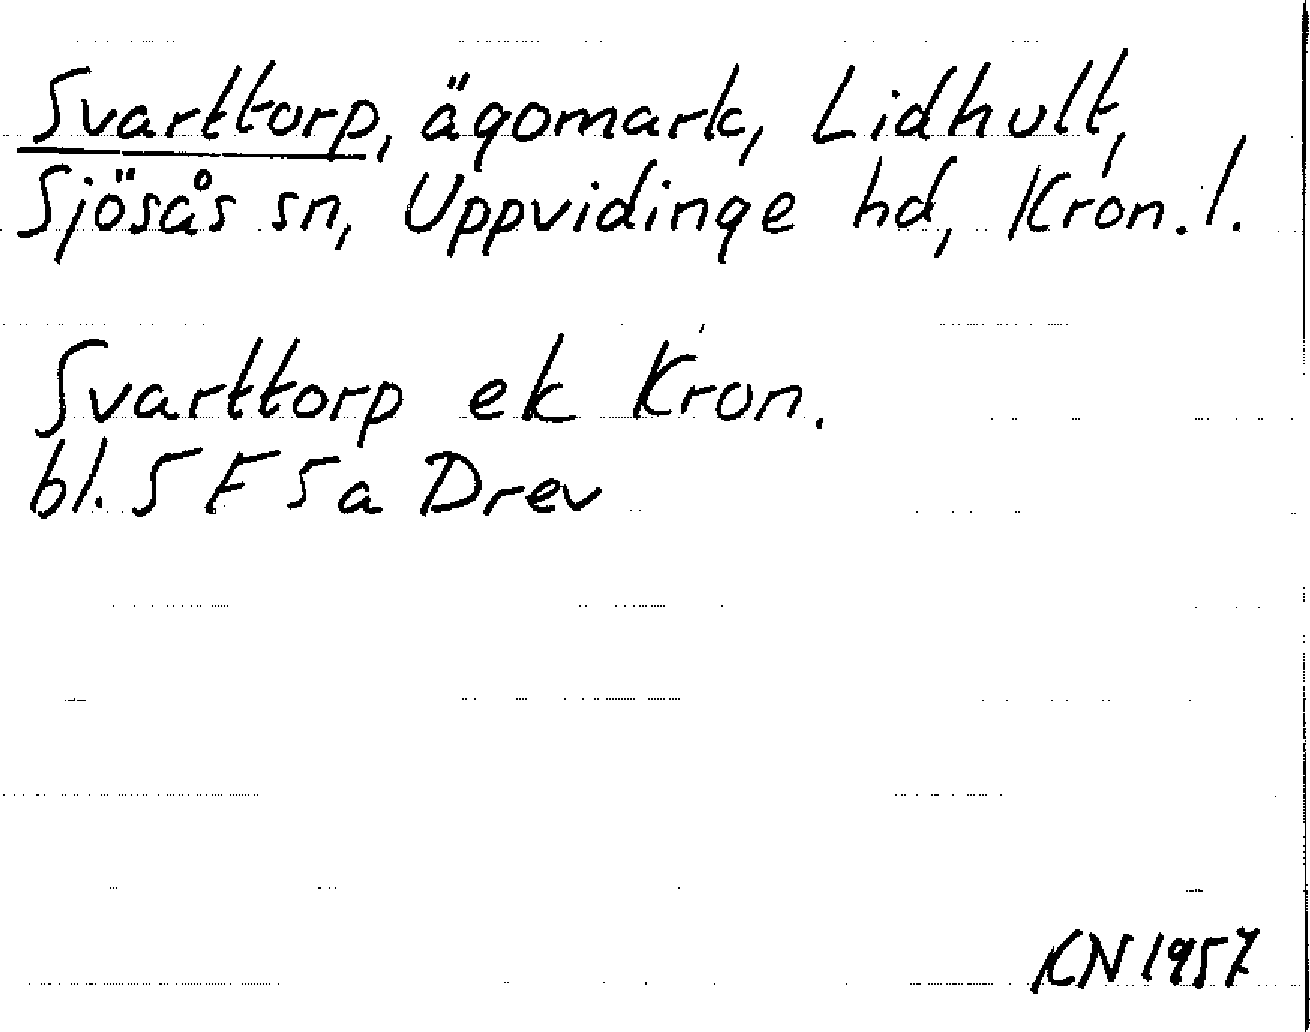 Svarttorp, ägomark, Lidhult,
Sjösås sn, Uppvidinge hd, Kron. l.
Svarttorp ek Kron.
bl. 5 F 5a Drev
KN 1957